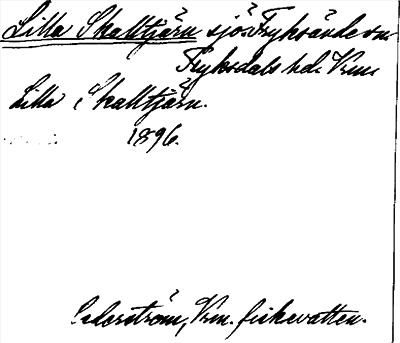 Lilla Skalltjärn sjö Fryksände sn
Fryksdals hd. Vrml
Lilla Skalltjärn.
1896.
Cederström, Vrm. fiskevatten.